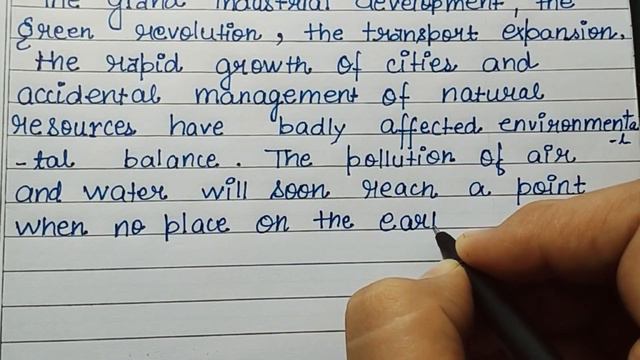 The grand industrial development, the
Green revolution, the transport expansion,
the rapid growth of cities and
accidental management of natural
resources have badly affected environmenta
-l
-tal balance. The pollution of air
and water will soon reach a point
when no place on the ear